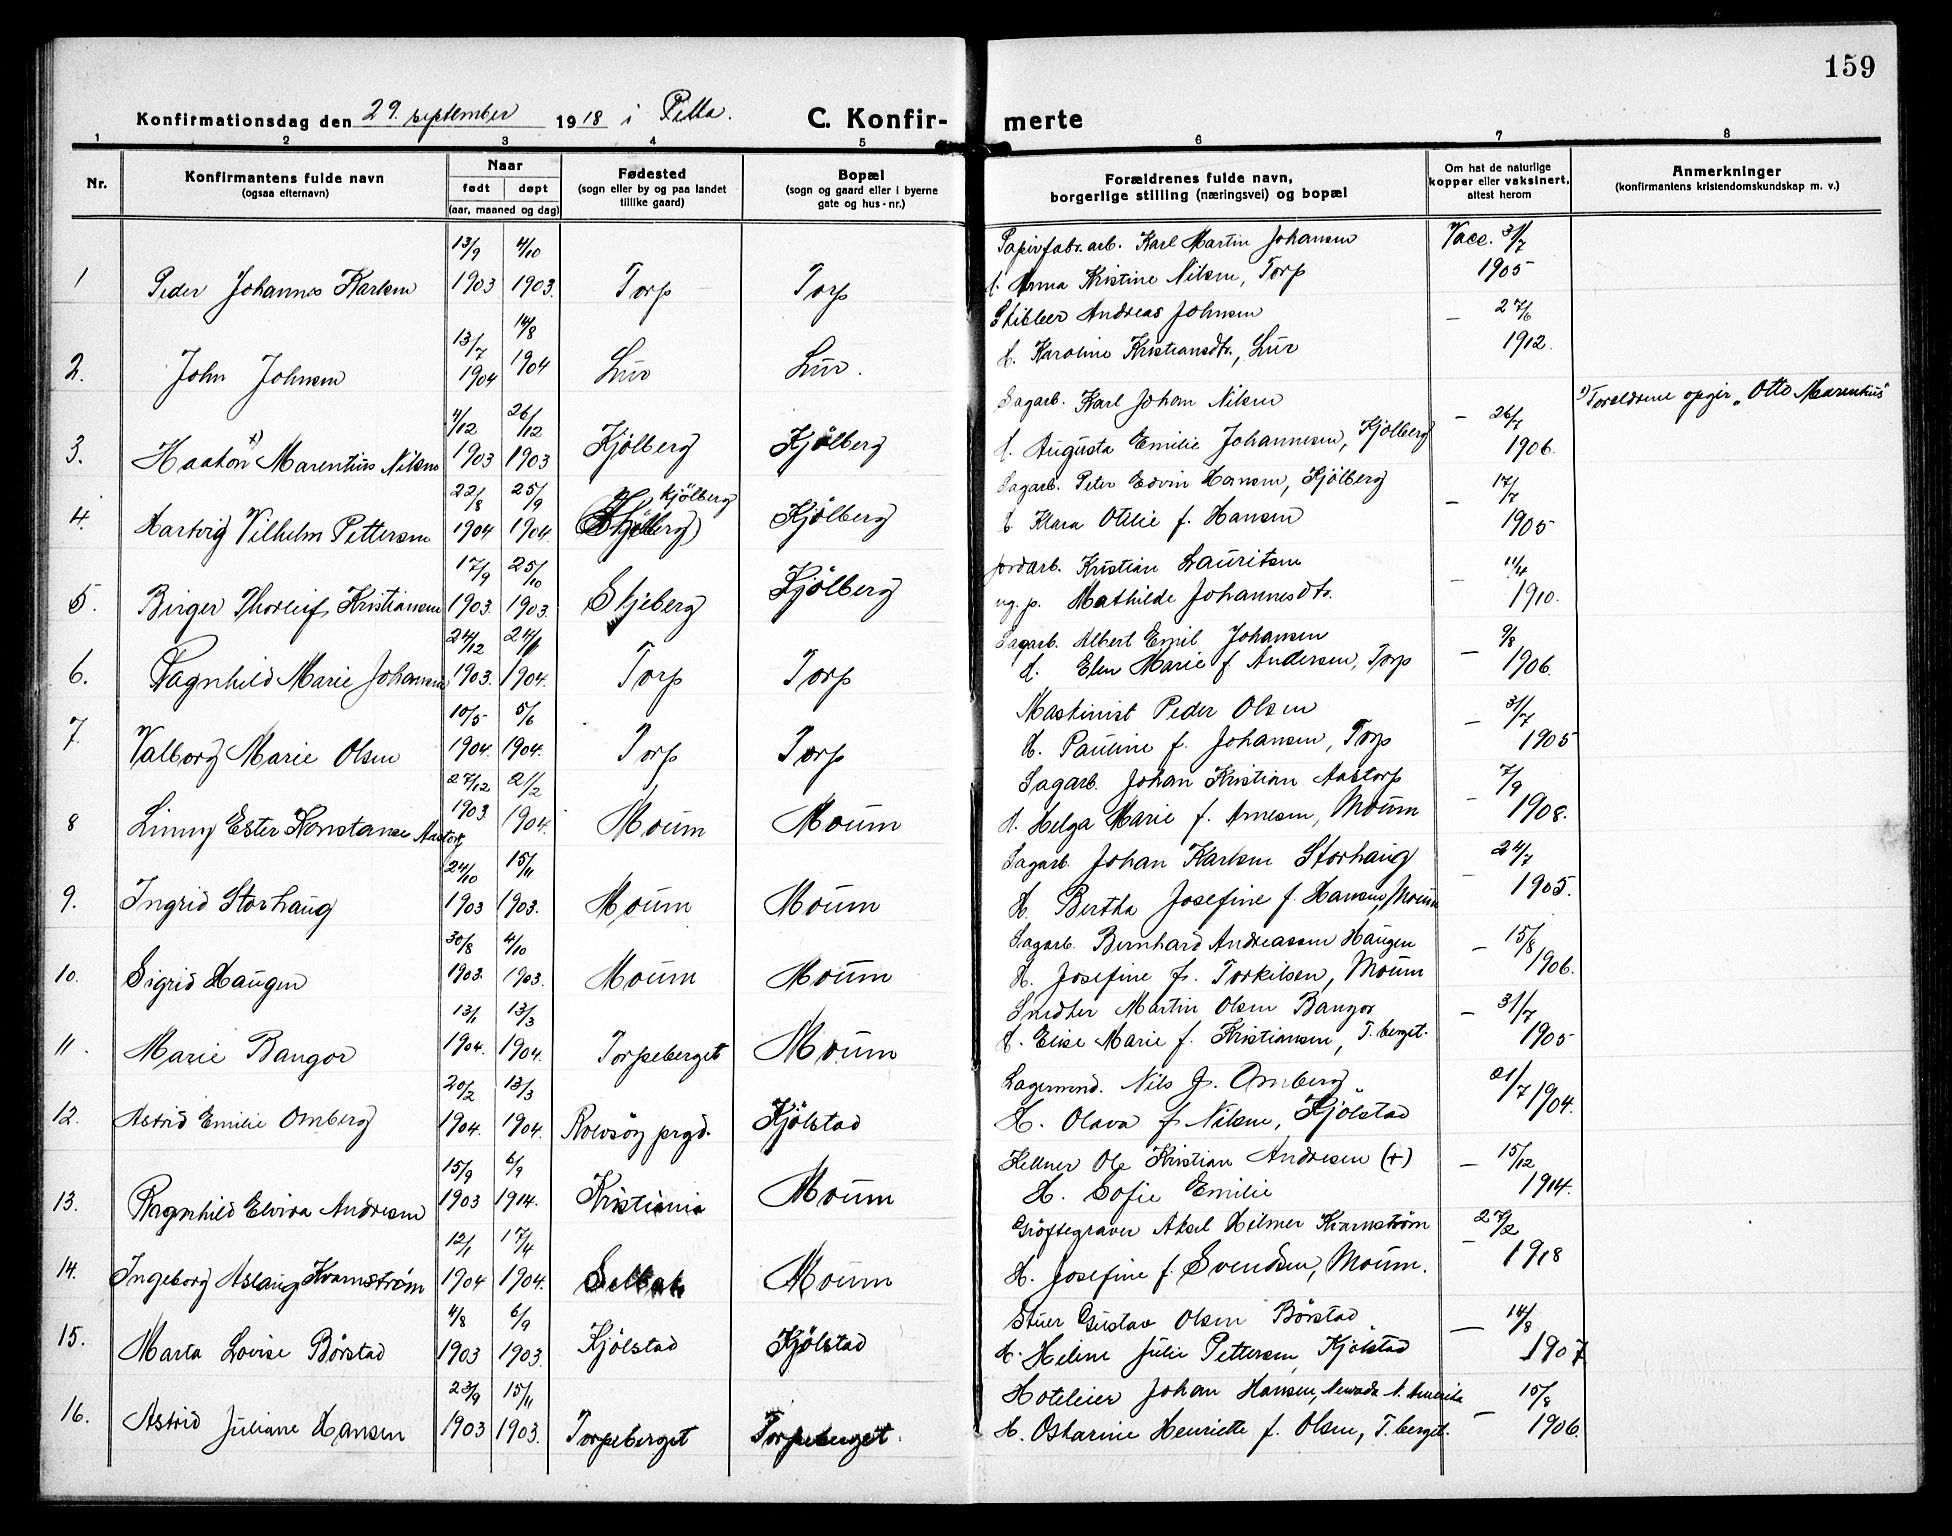 159
Konfirmationsdag den 29. september 1918 i Pella. C. Konfirmerte
1 2 3 4 5 6 7 8
Nr.
Konfirmantens fulde navn
(ogsaa efternavn)
Naar
født døpt
(aar, maaned og dag)
Fødested
(sogn eller by og paa landet
tillike gaard)
Bopæl
(sogn og gaard eller i byerne
gate og hus-nr.)
Forældrenes fulde navn,
borgerlige stilling (næringsvei) og bopæl
Om hat de naturlige
kopper eller vaksinert,
attest herom
Anmerkninger
(konfirmantens kristendomskundskap m. v.)
13/9 4/10 Papirfabr.arb. Karl Martin Johansen Vacc. 31/7
1 Peder Johannes Karlsen 1903 1903. Torp Torp H. Anna Kristine Nilsen, Torp 1905
13/7 14/8 Skibber Andreas Johnsen — 27/6
2. John Johnsen 1904 1904 Lur Lur. H. Karoline Kristiansdtr., Lur 1912.
4/12 26/12 Sagarb. Karl Johan Nilsen — 26/7 1) Foreldrene opgir "Otto Marentius"
3. Haakon 1) Marentius Nilsen 1903 1903 Kjölberg Kjölberg H. Augusta Emilie Johannesen, Kjölberg 1906.
22/8 25/9 Kjölberg Sagarb. Peter Edvin Hansen, Kjölberg — 17/7
4. Hartvig Vilhelm Pettersen 1904 1904. Kjölberg H. Klara Otilie f. Hansen 1905
17/9 25/10 Jordarb. Kristian Lauritsen — 11/4
5. Birger Thorleif Kristiansen 1903 1903. Skjeberg Kjölberg ug. p. Mathilde Johannesdtr. 1910.
24/12 24/1 Sagarb. Albert Emil Johansen — 9/8
6. Ragnhild Marie Johansen 1903. 1904. Torp Torp H. Elen Marie f Andersen, Torp 1906.
10/5 5/6 Maskinist Peder Olsen — 31/7
7. Valborg Marie Olsen 1904. 1904. Torp Torp H. Pauline f. Johansen, Torp 1905
27/12 21/2 Sagarb. Johan Kristian Aastorp — 7/9
8 Linny Ester Konstanse Aastorp 1903. 1904. Moum Moum H. Helga Marie f. Arnesen, Moum 1908.
24/10 15/11 Sagarb. Johan Karlsen Storhaug — 24/7
9. Ingrid Storhaug 1903 1903. Moum Moum H. Bertha Josefine f. Hansen, Moum 1905.
30/8 4/10 Sagarb. Bernhard Andreassen Haugen — 15/8
10. Sigrid Haugen 1903. 1903. Moum Moum H. Josefine f. Torkilsen, Moum 1906.
13/1 13/3 Snedker Martin Olsen Bangor — 31/7
11. Marie Bangor 1904. 1904. Torpeberget Moum H. Elise Marie f. Kristiansen, T. berget. 1905
20/2 13/3 Lagermand. Nils J. Omberg 21/7
12. Astrid Emilie Omberg 1904. 1904. Rolvsöy prgd. Kjölstad H. Olava f Nilsen, Kjölstad 1904.
15/9 6/9 Kellner Ole Kristian Andresen (+) — 15/12
13. Ragnhild Elvira Andresen 1903 1914. Kristiania Moum H. Sofie Emilie 1914.
12/1 17/4 Grøftegraver Aksel Hilmer Kvarnström — 27/2
14. Ingeborg Aslaug Kvarnström 1904 1904. Moum H. Josefine f. Svendsen, Moum. 1918
4/8 6/9 Stuer Gustav Olsen Börstad — 14/8
15. Marta Lovise Börstad 1903 1903. Kjölstad Kjölstad H. Heline Julie Pettersen, Kjölstad 1907
23/9 15/11 Hoteleier Johan Hansen, Newada N. Amerika — 15/8
16. Astrid Juliane Hansen 1903 1903. Torpeberget Torpeberget. H. Oskarine Henriette f. Olsen, T. berget. 1906.